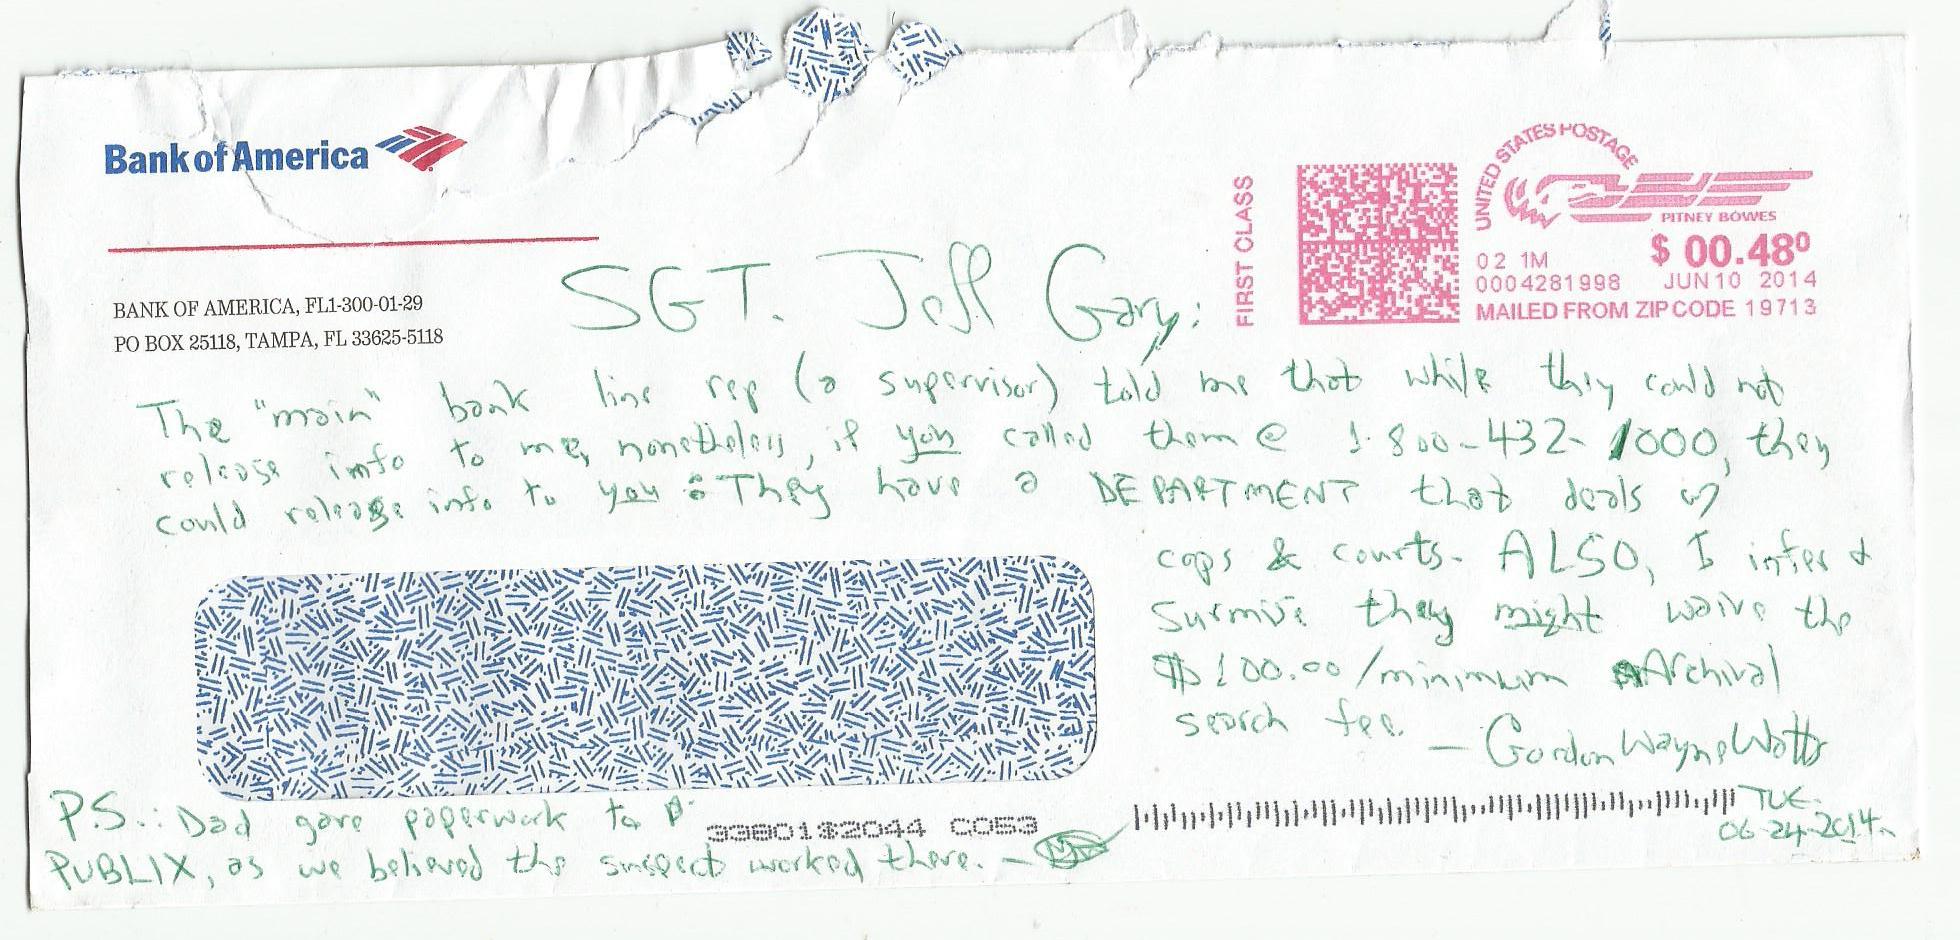 Bank of America
FIRST CLASS
UNITED STATES POSTAGE
PITNEY BOWES
02 1M $ 00.48⁰
0004281998 JUN 10 2014
MAILED FROM ZIP CODE 19713
BANK OF AMERICA, FL1-300-01-29
PO BOX 25118, TAMPA, FL 33625-5118
SGT. Jeff Gary:
The "main" bank line rep (a supervisor) told me that while they could not
release info to me, nonetheless, if you called them @ 1-800-432-1000, they
could release info to you: They have a DEPARTMENT that deals w/
cops & courts. ALSO, I infer &
surmise they might waive the
$100.00/minimum Archival
search fee.
— Gordon Wayne Watts
TUE.
06-24-2014
P.S.: Dad gave paperwork to
33801$2044 C053
PUBLIX, as we believed the suspect worked there. —